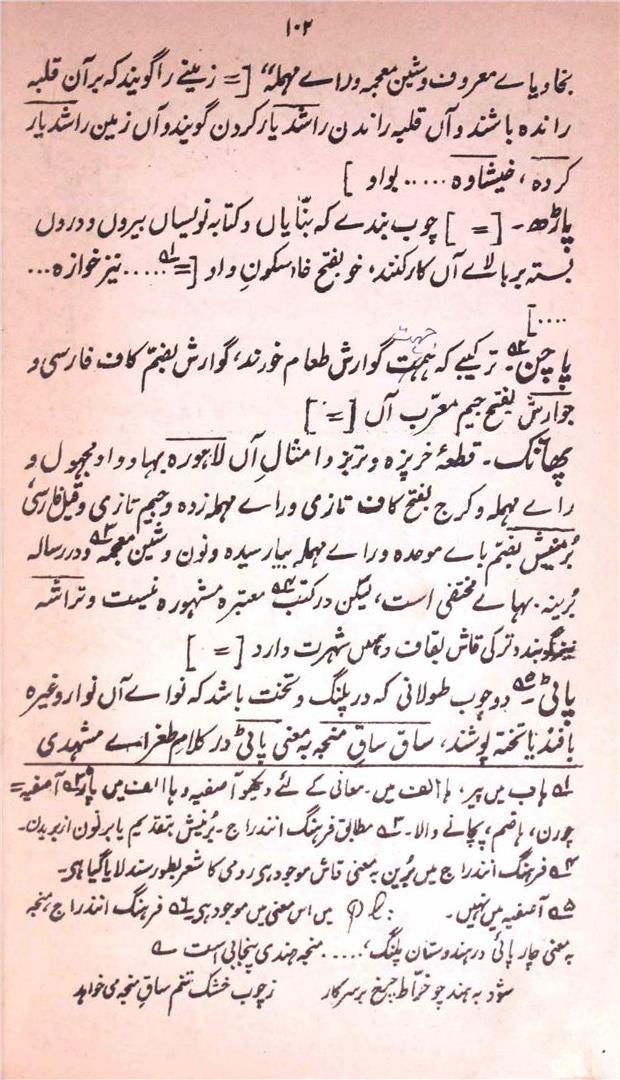 ۱۰۲
بخا ویاے معروف و شین معجمہ و راے مہملہ“ [= زمینے را گویند کہ برآن قلبہ
راندہ باشند و آں قلبہ راندن را شدیار کردن گویند و آں زمین را شدیار
کردہ، خیشاوہ ..... بواو ]
پاڑھ۔ [ = ] چوب بندے کہ بنّایاں و کتابہ نویساں بیروں و دروں
بستہ بر بالاے آں کار کنند، خو بفتح خا و سکونِ واو [= ۱ ..... نیز خوازہ ...
.... ]
پاچن ۲۔ ترکیبے کہ جہت گوارش طعام خورند، گوارش بضمّ کاف فارسی و
جوارش بفتح جیم معرّب آں [ = ]
پھانک۔ قطعۂ خربزہ و تربز و امثالِ آں لاہورہ بہا و واو مجہول و
راے مہملہ و کرج بفتح کاف تازی و راے مہملہ زدہ و جیم تازی و قیل فارسی
بُرمنیش بضمّ باے موحدہ و راے مہملہ بیا رسیدہ و نون و شین معجمہ ۳ و در رسالہ
بُرینہ۔ بہاے مختفی است، لیکن در کتب ۴ معتبرہ مشہورہ نیست و تراشہ
نیز گویند و ترکی قاش بقاف و ہمیں شہرت دارد [ = ]
پاٹی ۵۔ دو چوب طولانی کہ در پلنگ و تخت باشد کہ نواے آں نوار وغیرہ
بافند یا تختہ پوشند، ساق ساقِ منجہ بہ معنی پاٹی در کلامِ طغراے مشہدی
۱ ہاب میں پیر، ہا الف میں۔ معانی کے لئے دیکھو آصفیہ و ہا الف میں پاڑ ۲ آصفیہ =
چورن، ہاضم، پچانے والا۔ ۳ مطابق فرہنگ انندراج۔ برنیش بتقدیم یا بر نون از بریدن۔
۴ فرہنگ انندراج میں بُرین بہ معنی قاش موجود ہی رومی کا شعر بطور سند لایا گیا ہی۔
۵ آصفیہ میں نہیں۔ Pl: میں اس معنی میں موجود ہی۔ ۶ فرہنگ انندراج، منجہ
بہ معنی چار پائی در ہندوستان پلنگ، .... منجہ ہندی پنجابی است ؎
شود بہ ہند چو خرّاط چرخ بر سر کار زچوب خشک تنم ساقِ منجہ می خواہد